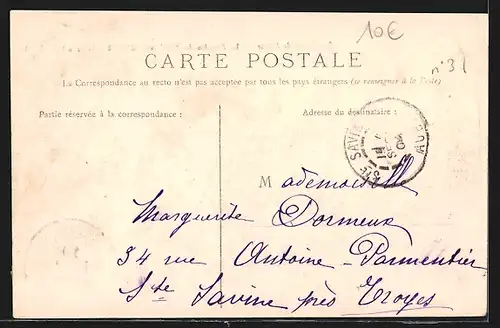 10€
CARTE POSTALE
n°31
La Correspondance au recto n'est pas acceptée par tous les pays étrangers (se renseigner à la Poste)
Partie réservée à la correspondance :
Adresse du destinataire :
STE SAVINE
AUBE
Mademoiselle
Marguerite Dormeux
34 rue Antoine-Parmentier
Ste Savine près Troyes